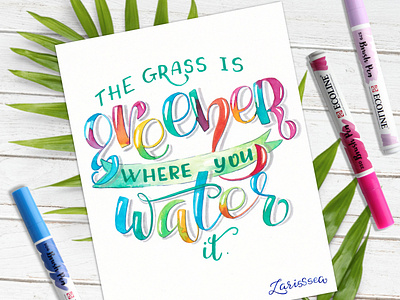 THE GRASS IS
greener
WHERE YOU
water
it.
Larisssea
Brush Pen
ECOLINE
Brush Pen
ECOLINE
Brush Pen